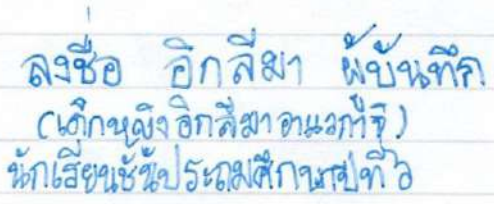 ลงชื่อ อิกลีมา ผู้บันทึก
(เด็กหญิงอิกลีมา อาแวกาจิ)
นักเรียนชั้นประถมศึกษาปีที่ ๖